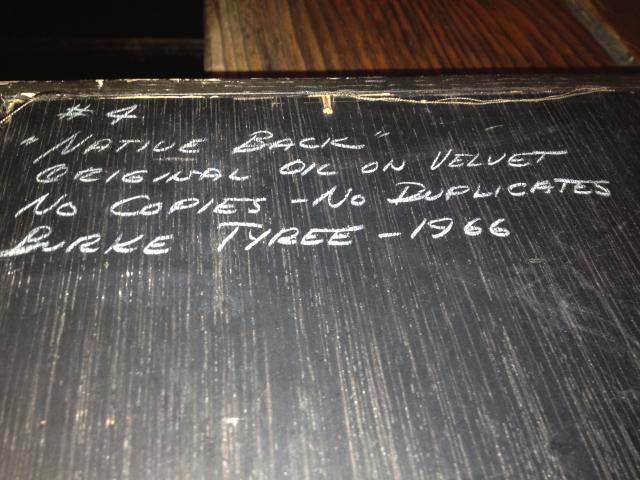 # 4
"NATIVE BACK"
ORIGINAL OIL ON VELVET
NO COPIES - NO DUPLICATES
BURKE TYREE - 1966